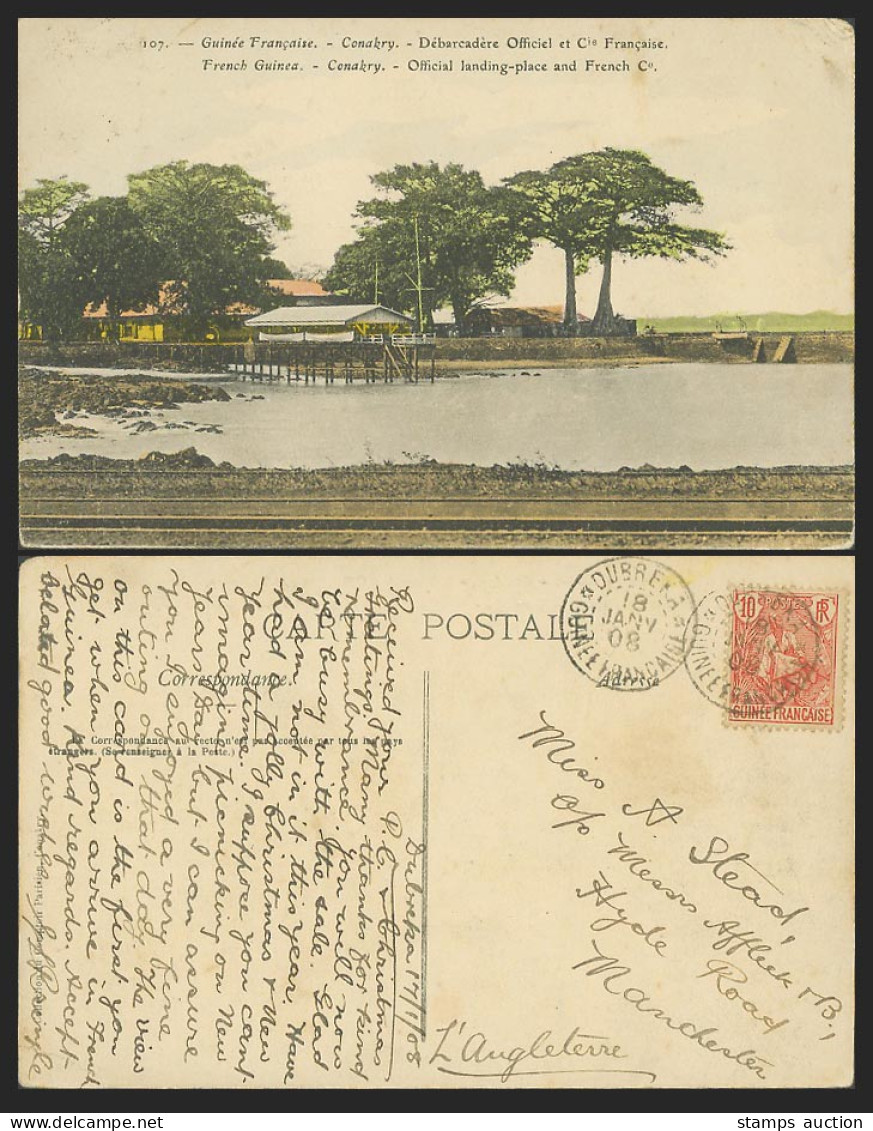 107. — Guinée Française. - Conakry. - Débarcadère Officiel et Cie Française.
French Guinea. - Conakry. - Official landing-place and French Co.
CARTE POSTALE
Correspondance.
Adresse
La Correspondance au recto n'est pas acceptée par tous les pays
étrangers. (Se renseigner à la Poste.)
DUBREKA
18
JANV
08
GUINÉE FRANÇAISE
10
RF
GUINÉE FRANÇAISE
Dubreka 17/1/08
Received your P.C. & Christmas
Greetings. Many thanks for kind
remembrance. You will now
be busy with the sale. Glad
I am not in it this year. Have
had a jolly Christmas & New
Year time. I suppose you cant
imagine picnicking on New
Years Day but I can assure
you I enjoyed a very fine
outing on that day. The view
on this card is the first you
get when you arrive in French
Guinea. Kind regards. Accept
belated good wishes
Miss A Stead,
c/o Messrs Affleck & B.,
Hyde Road
Manchester
L'Angleterre
stamps auction